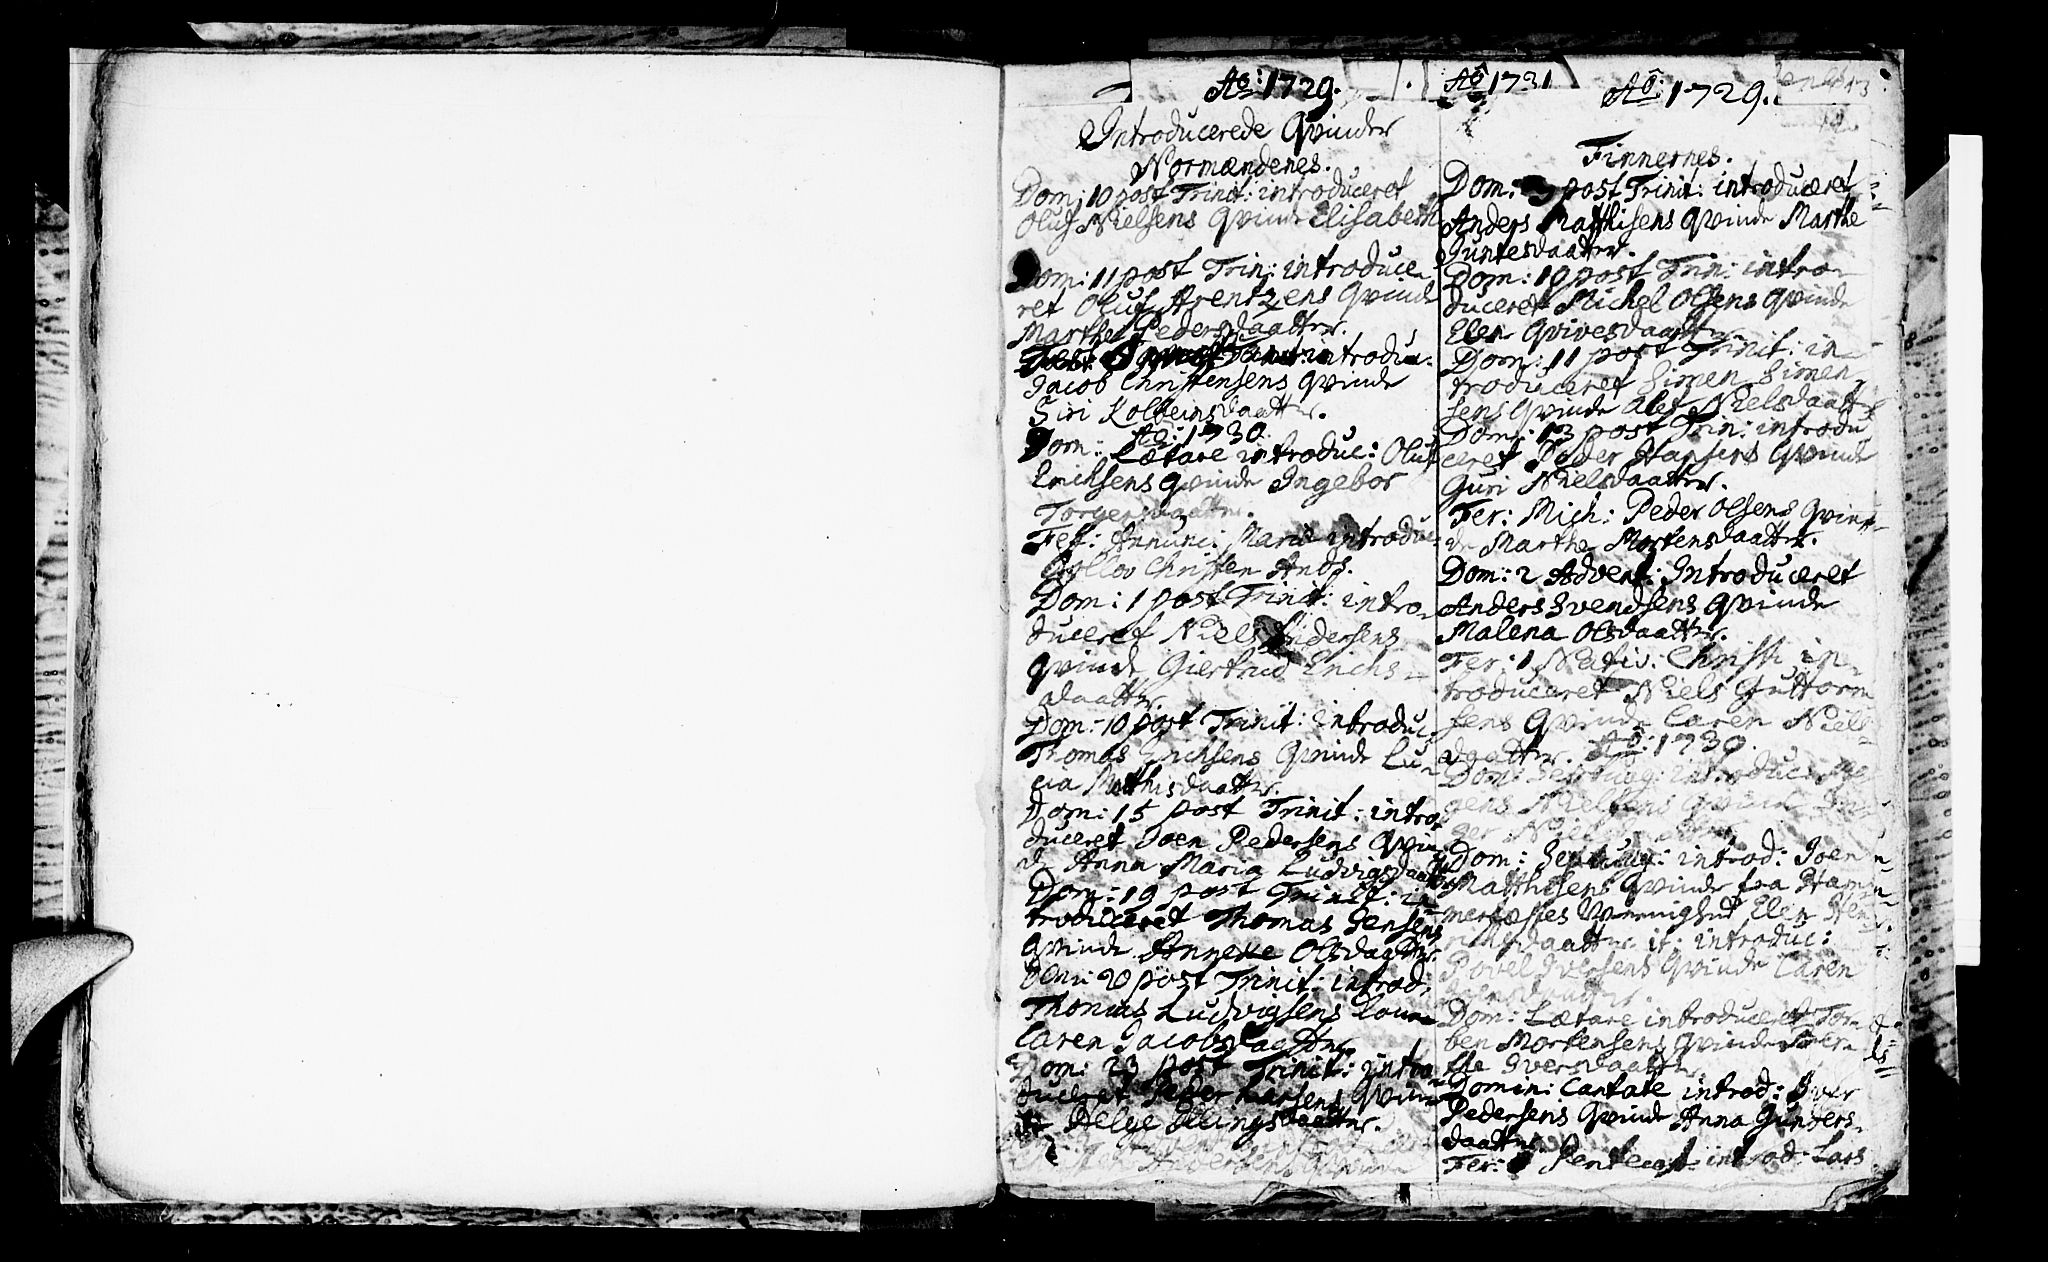 Ao: 1729.
Introducerede Qvinder
Normændenes.
Dom: 10 post Trinit: introduceret
Oluf Nielsens Qvinde Elisabeth
Dom: 11 post Trin: introduce-
ret Oluf Arentzens Qvinde
Marthe Pedersdaatter.
introdu-
Jacob Christensens Qvinde
Siri Kolbeinsdaatter.
Ao: 1730
Dom: Lætare introduc: Oluf
Erichsens Qvinde Ingebor
Torgersdaatter.
Fest: Annunc: Mariæ introduc:
Christen Ands.
Dom: 1 post Trinit: intro-
duceret Niels Pedersens
Qvinde Giertrud Erichs-
daatter.
Dom: 10 post Trinit: introduc:
Thomas Erichsens Qvinde Lu-
cia Matthisdaatter.
Dom: 15 post Trinit: intro-
duceret Joen Pedersens Qvin-
de Anna Maria Ludvigsdaatter
Dom: 19 post Trinit: in-
troduceret Thomas Jensens
Qvinde Anneke Olsdaatter.
Dom: 20 post Trinit: introd:
Thomas Ludvigsens Kone
Caren Jacobsdaatter
Dom: 23 post Trinit: intro-
duceret Peder Hansens Qvin-
de Helge Ellingsdaatter.
Andersens Qvinde
Ao 1731
Ao: 1729.
Finnernes.
Dom: 9 post Trinit: introduceret
Anders Matthisens Qvinde Marthe
Guntesdaatter.
Dom: 10 post Trin: intro-
duceret Michel Olsens Qvinde
Elen Qvivesdaatter
Dom: 11 post Trinit: in-
troduceret Simen Simen-
sens Qvinde Ales Nielsdaatter
Dom: 13 post Trin: introdu-
ceret Peder Hansens Qvinde
Guri Nielsdaatter.
Fer: Mich: Peder Olsens Qvin-
de Marthe Mortensdaatter.
Dom: 2 Advent: Introduceret
Anders Svendsens Qvinde
Malena Olsdaatter.
Fer: 1 Nativ: Christi in-
troduceret Niels Guttorm-
sens Qvinde Caren Niels-
daatter. Ao: 1730.
Dom: Septuag: introduc:
Nielsens Qvinde In-
ger Niels
Dom: Septuag: introd: Joen
Matthisens Qvinde fra Ham-
merfæstes Menighed Elen Hen-
richsdaatter it: introduc:
Povel Iversens Qvinde Caren
Dom: Lætare introduceret Tor-
ben Mortensens Qvinde
the Iversdaatter.
Domin: Cantate introd: Iver
Pedersens Qvinde Anna Gunders-
daatter.
Fer: Pentecost introd: Lars